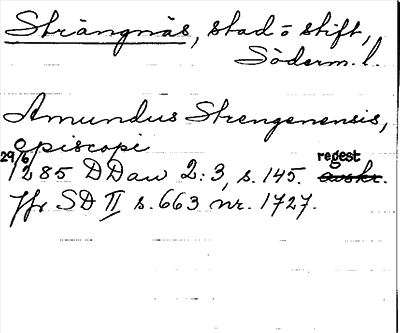 Strängnäs, stad o stift,
Söderm. l.
Amundus Strengenensis,
episcopi
29/6 1285 DDan 2:3, s. 145. regest avskr.
Jfr SD II s. 663 nr. 1727.